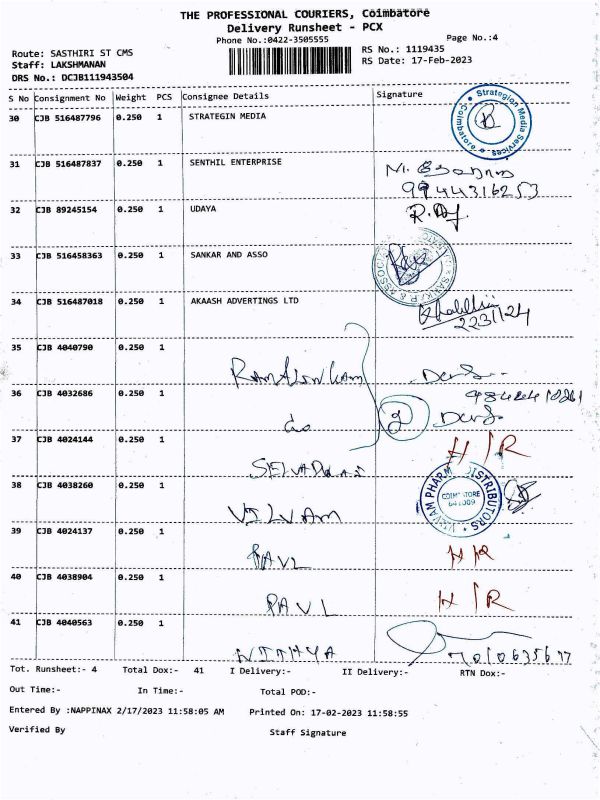 THE PROFESSIONAL COURIERS, Coimbatore
Delivery Runsheet - PCX
Phone No.:0422-3505555
Page No.:4
Route: SASTHIRI ST CMS
RS No.: 1119435
Staff: LAKSHMANAN
RS Date: 17-Feb-2023
DRS No.: DCJB111943504
S No Consignment No Weight PCS Consignee Details Signature
30 CJB 516487796 0.250 1 STRATEGIN MEDIA
Strategion Media Services
Coimbatore
31 CJB 516487837 0.250 1 SENTHIL ENTERPRISE
9944316253
32 CJB 89245154 0.250 1 UDAYA
33 CJB 516458363 0.250 1 SANKAR AND ASSO
34 CJB 516487018 0.250 1 AKAASH ADVERTINGS LTD
35 CJB 4040790 0.250 1
36 CJB 4032686 0.250 1 do
2
37 CJB 4024144 0.250 1 SELVADURAI H/R
38 CJB 4038260 0.250 1 VILVAM
PHARM DISTRIBUTORS
COIMBATORE
641009
39 CJB 4024137 0.250 1 PAVL HR
40 CJB 4038904 0.250 1 PAVL H/R
41 CJB 4040563 0.250 1 NITHYA
Tot. Runsheet:- 4 Total Dox:- 41 I Delivery:- II Delivery:- RTN Dox:-
Out Time:- In Time:- Total POD:-
Entered By :NAPPINAX 2/17/2023 11:58:05 AM Printed On: 17-02-2023 11:58:55
Verified By Staff Signature